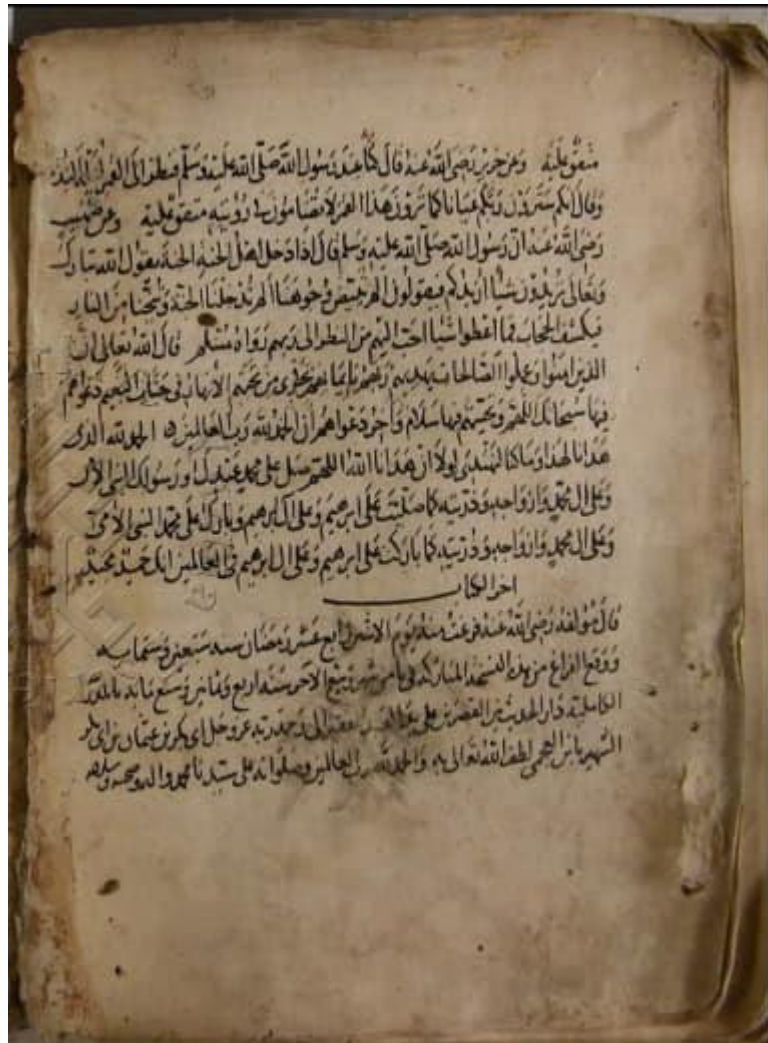 متفق عليه وعن جرير رضى الله عنه قال كنا عند رسول الله صلى الله عليه وسلم فنظر الى القمر ليلة البدر
وقال انكم سترون ربكم عيانا كما ترون هذا القمر لا تضامون فى رؤيته متفق عليه وعن صهيب
رضى الله عنه ان رسول الله صلى الله عليه وسلم قال اذا دخل اهل الجنة الجنة يقول الله تبارك
وتعالى تريدون شيا ازيدكم فيقولون الم تبيض وجوهنا الم تدخلنا الجنة وتنجنا من النار
فيكشف الحجاب فما اعطوا شيا احب اليهم من النظر الى ربهم رواه مسلم قال الله تعالى ان
الذين امنوا وعملوا الصالحات يهديهم ربهم بايمانهم تجرى من تحتهم الانهار فى جنات النعيم دعواهم
فيها سبحانك اللهم وتحيتهم فيها سلام واخر دعواهم ان الحمد لله رب العالمين الحمد لله الذى
هدانا لهذا وما كنا لنهتدى لولا ان هدانا الله اللهم صل على محمد عبدك ورسولك النبى الامى
وعلى ال محمد وازواجه وذريته كما صليت على ابرهيم وعلى ال ابرهيم وبارك على محمد النبى الامى
وعلى ال محمد وازواجه وذريته كما باركت على ابرهيم وعلى ال ابرهيم فى العالمين انك حميد مجيد
اخر الكتاب
قال مؤلفه رضى الله عنه فرغت منه يوم الاثنين رابع عشر رمضان سنه سبعين وستمايه
ووقع الفراغ من هذه النسخه المباركه فى ثامن شهر ربيع الآخر سنه اربع وثمانين وسبع مائه بالمدرسة
الكامليه دار الحديث بين القصرين على يد العبد الفقير الى رحمة ربه عز وجل ابى بكر بن عثمان بن
الشهير بابن العجمى لطف الله تعالى به والحمد لله رب العالمين وصلواته على سيدنا محمد واله وصحبه وسلامه